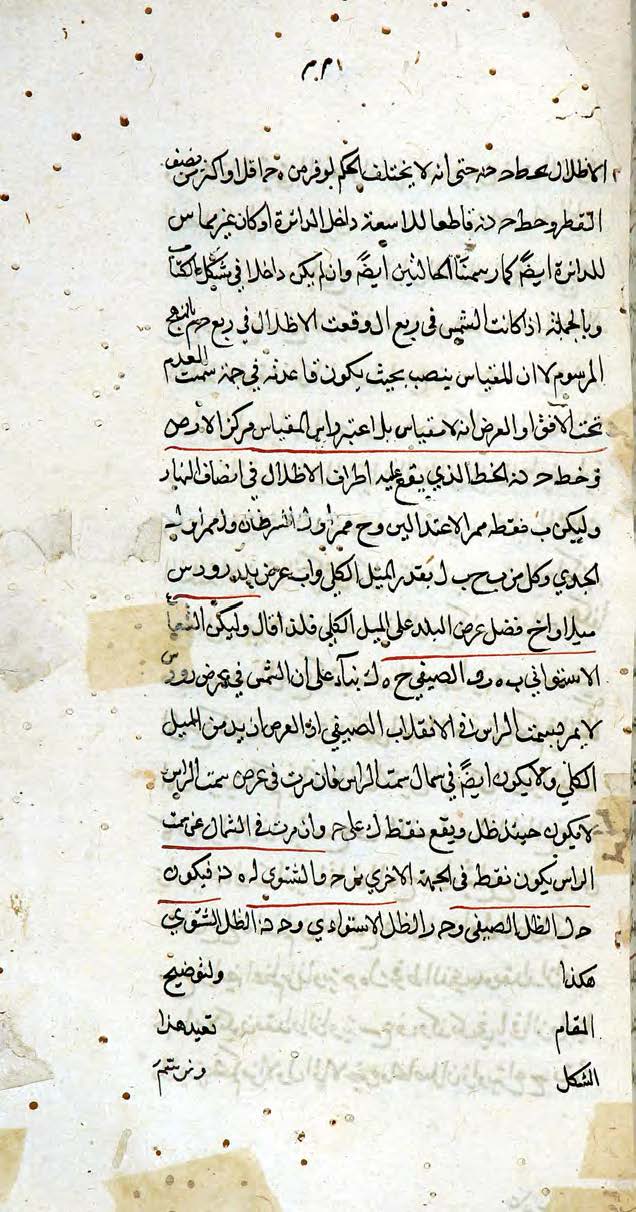 الاظلال خط ح د حتى انه لا يختلف الحكم لو فرض ه ح اقل او اكثر من نصف
القطر وخط ح د قاطعا للاسعة داخل الدائرة او كان غير مماس
للدائرة ايضا كما رسمنا الحالتين ايضا وان لم يكن داخلا في شكل الكتاب
وبالجملة اذا كانت الشمس في ربع ا ل وقعت الاظلال في ربع
المرسوم لا ان للمقياس ينصب بحيث يكون قاعدته في جهة سمت القدم
تحت الافق او العرض انه لا مقياس بل اعتبر راس المقياس مركز الارض
فخط ح د الخط الذي يقع عليه اطراف الاظلال في انصاف النهار
وليكن ب نقطة ممر الاعتدالين وح ممر اول السرطان ول ممر اول
الجدي وكل من ب ح ب ل بقدر الميل الكلي واب عرض بلد رودس
مثلا واح فضل عرض البلد على الميل الكلي فلذا قال وليكن الشعاع
الاستوائي ب ه ر والصيفي ح ه ك بناء على ان الشمس في عرض رودس
لا يمر بسمت الراس في الانقلاب الصيفي اذ العرض ازيد من الميل
الكلي ولا يكون ايضا في شمال سمت الراس فان مرت في عرض سمت الراس
لا يكون حينئذ ظل ويقع نقطة ك على ح وان مرت في الشمال عن سمت
الراس يكون نقطة في الجهة الاخرى من ح والشتوي ل ه د فيكون
ح ك الظل الصيفي و ح ر الظل الاستوائي و ح د الظل الشتوي
هكذا ولتوضيح
المقام نعيد هذا
الشكل ونرسم